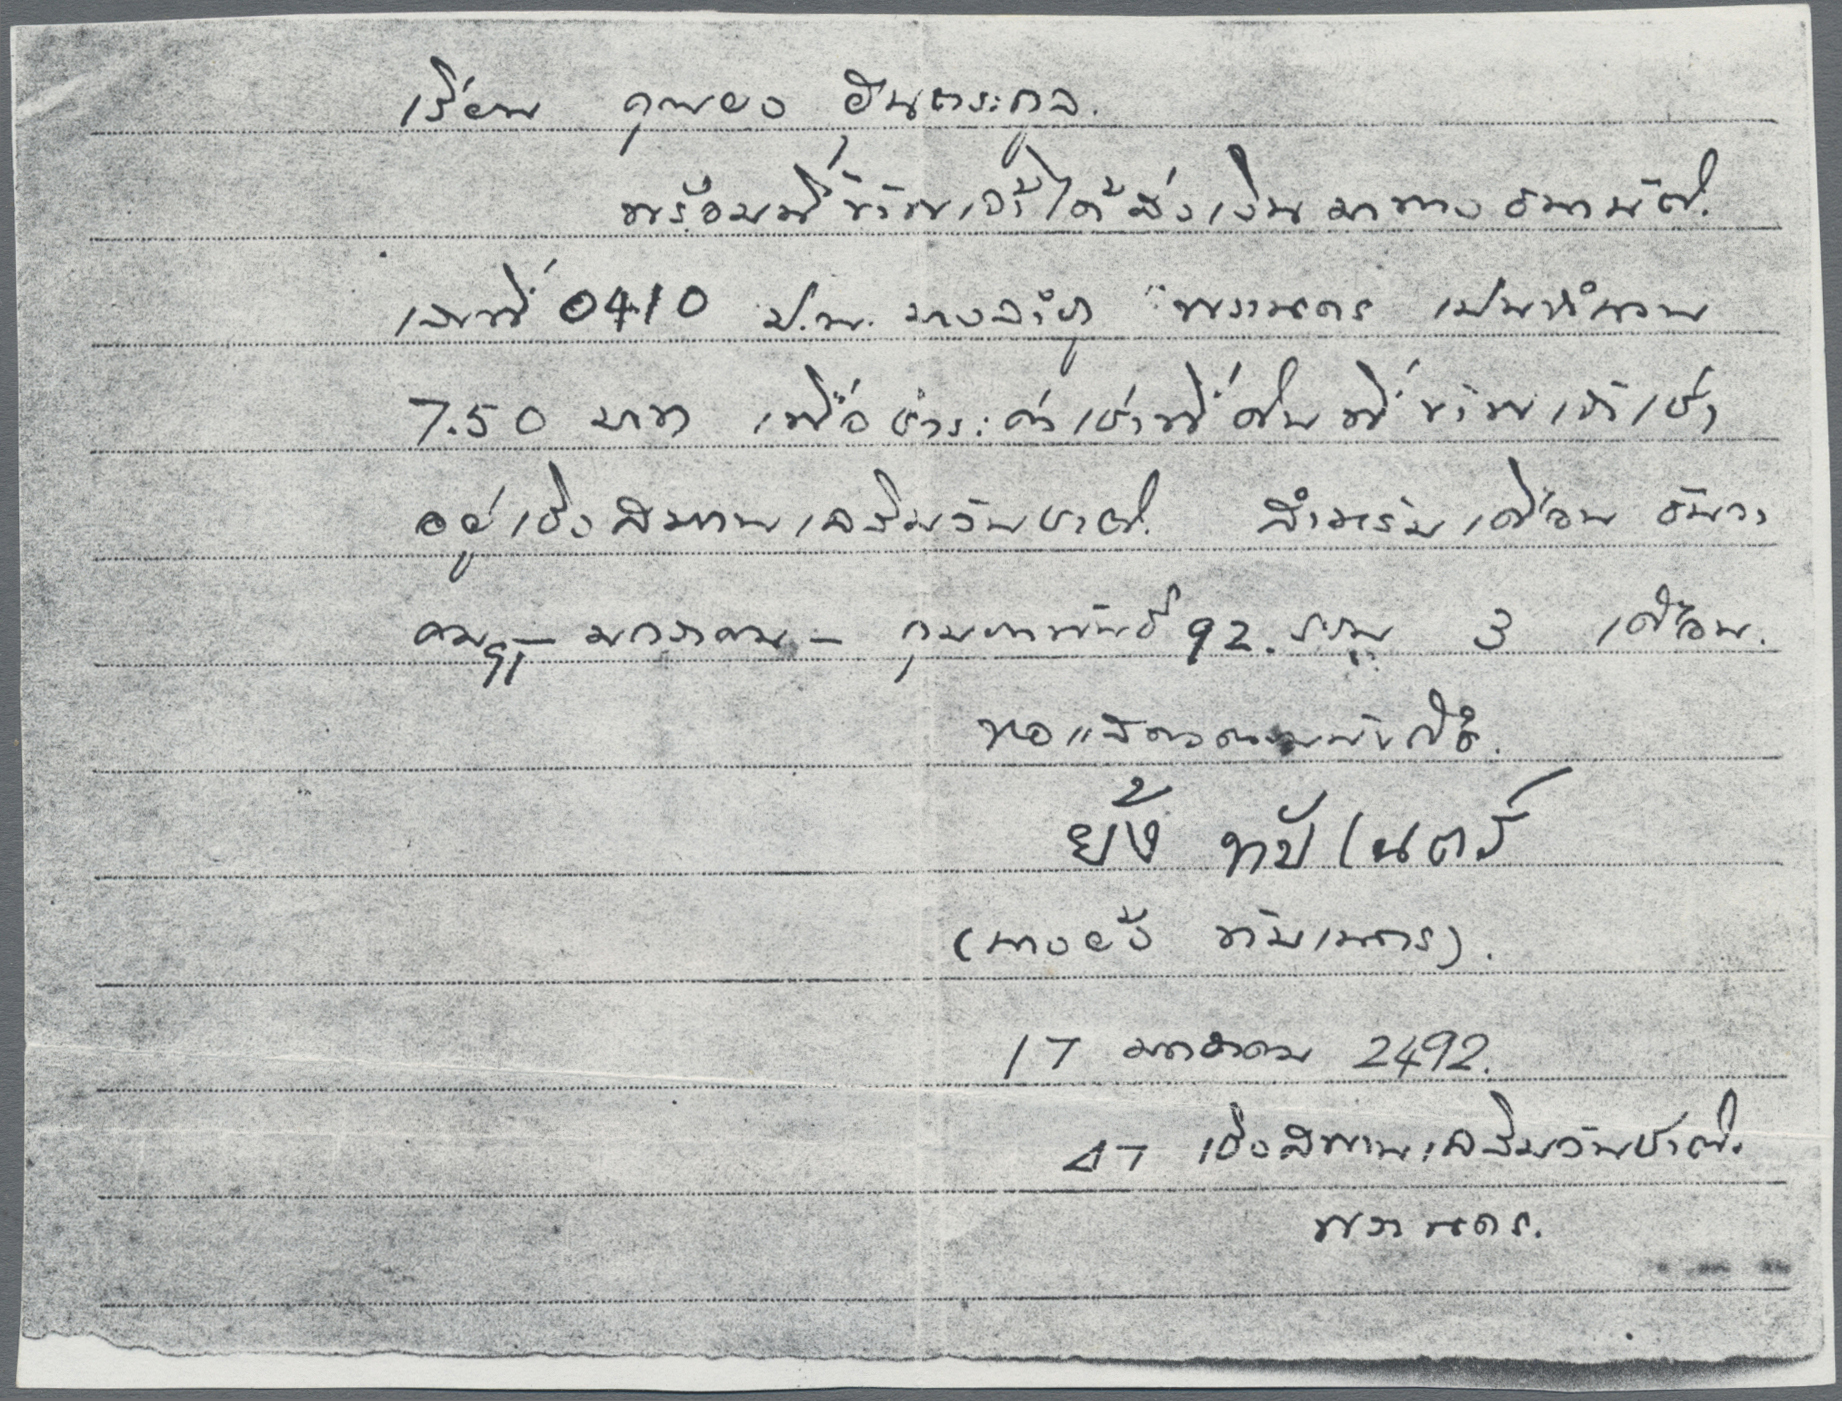 เรียน คุณยง อินตระกูล.
พร้อมนี้ข้าพเจ้าได้ส่งเงินมาทางธนาณัติ.
เลขที่ 0410 ป.ณ. บางลำภู พระนคร เป็นจำนวน
7.50 บาท เพื่อชำระค่าเช่าที่ดินที่ข้าพเจ้าเช่า
อยู่เชิงสะพานเฉลิมวันชาติ. สำหรับเดือน ธันวา
คม 91 – มกราคม – กุมภาพันธ์ 92. รวม 3 เดือน.
ขอแสดงความนับถือ.
ยั้ง ทับเนตร์
(นางยั้ง ทับเนตร).
17 มกราคม 2492.
47 เชิงสพานเฉลิมวันชาติ.
พระนคร.